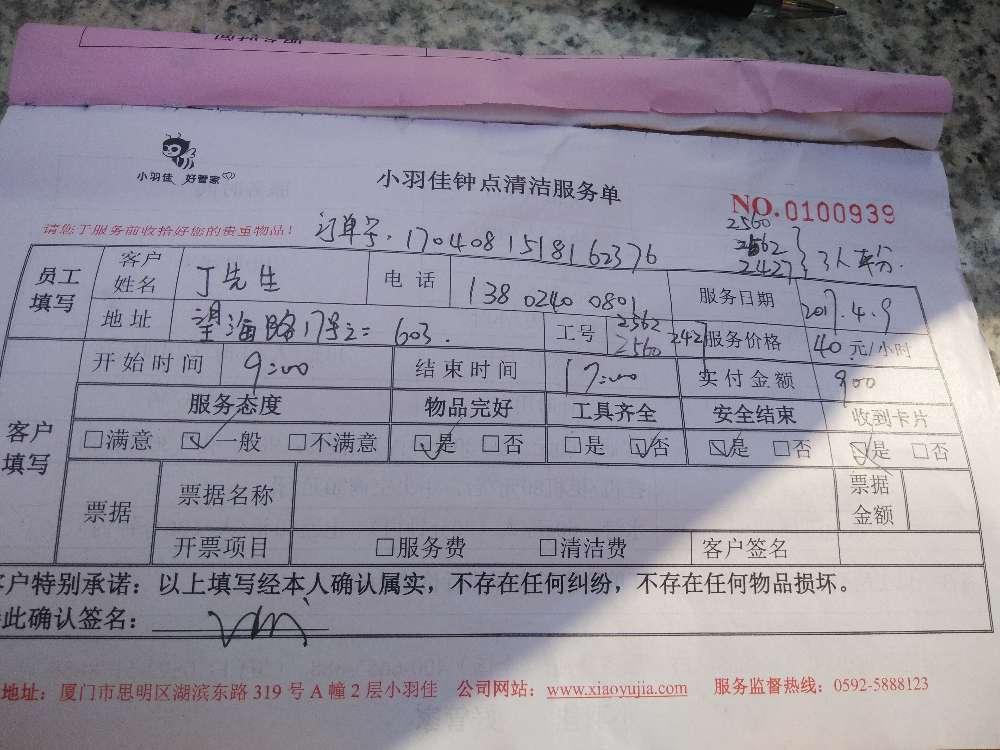 小羽佳 好管家
小羽佳钟点清洁服务单
NO.0100939
请您于服务前收拾好您的贵重物品！
订单号:1704081518162376
2560
2562
2427
3人
员工填写 客户姓名 丁先生 电话 138 0240 0801 服务日期 2017.4.9
地址 望海路17号之二 603. 工号 2562 2560 2427 服务价格 40 元/小时
客户填写 开始时间 9:00 结束时间 17:00 实付金额 900
服务态度 物品完好 工具齐全 安全结束 收到卡片
□满意 ☑一般 □不满意 ☑是 □否 □是 ☑否 ☑是 □否 ☑是 □否
票据 票据名称 票据金额
开票项目 □服务费 □清洁费 客户签名
客户特别承诺：以上填写经本人确认属实，不存在任何纠纷，不存在任何物品损坏。
此确认签名：
地址：厦门市思明区湖滨东路319号A幢2层小羽佳 公司网站：www.xiaoyujia.com 服务监督热线：0592-5888123